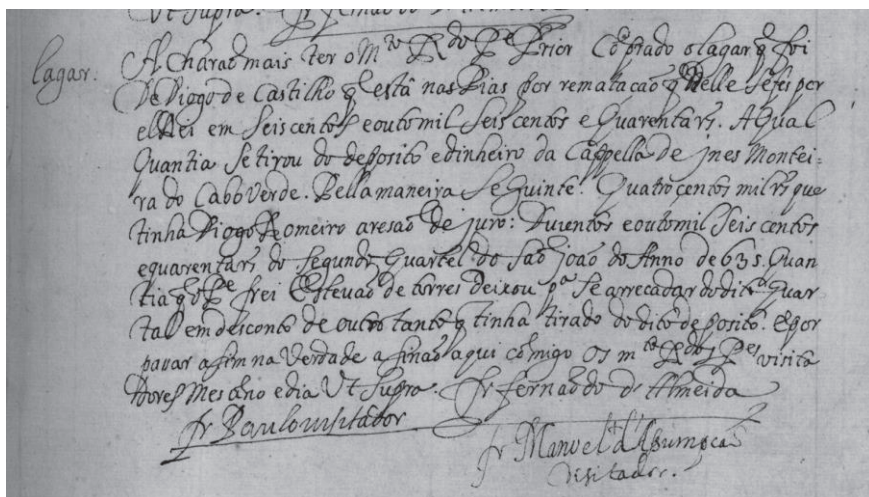 Vt Supra. Fr fernando de Almeida
lagar.
Acharaõ mais ter o M.to R.do P.e Prior Cõprado o lagar q̃ foi
De Diogo de Castilho q̃ està nas Pias por remataçaõ q̃ nelle se fes por
elRei em seis centos e outo mil seis centos e quarenta rs̃. A qual
Quantia se tirou do deposito e dinheiro da Cappella de Jnes Montei:
ra do Cabo Verde. Pella maneira seguinte. Quatro centos mil rs̃ que
tinha Diogo Romeiro a resaõ de juro: Duzentos e outo mil seis centos
e quarenta rs̃ do segundo Quartel do saõ joaõ do Anno de 635. Quan
tia q̃ o P.e frei Estevaõ de torres deixou p.a se arrecadar do dito quar
tal em desconto de outro tanto q̃ tinha tirado do dito deposito. E por
passar assim na Verdade assinaõ aqui cõmigo os m.to R.dos P.es visita
dores Mes anno e dia Vt Supra. Fr fernaõdo de Almeida
fr Paulo visitador
fr Manoel d'Asumpçaõ
visitador.